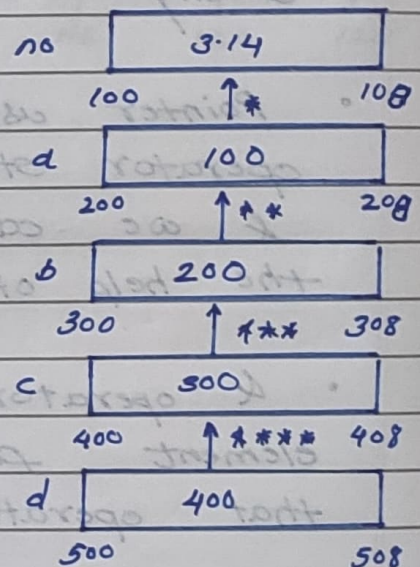 no 3.14
100 * 108
a 100
200 ** 208
b 200
300 *** 308
c 300
400 **** 408
d 400
500 508